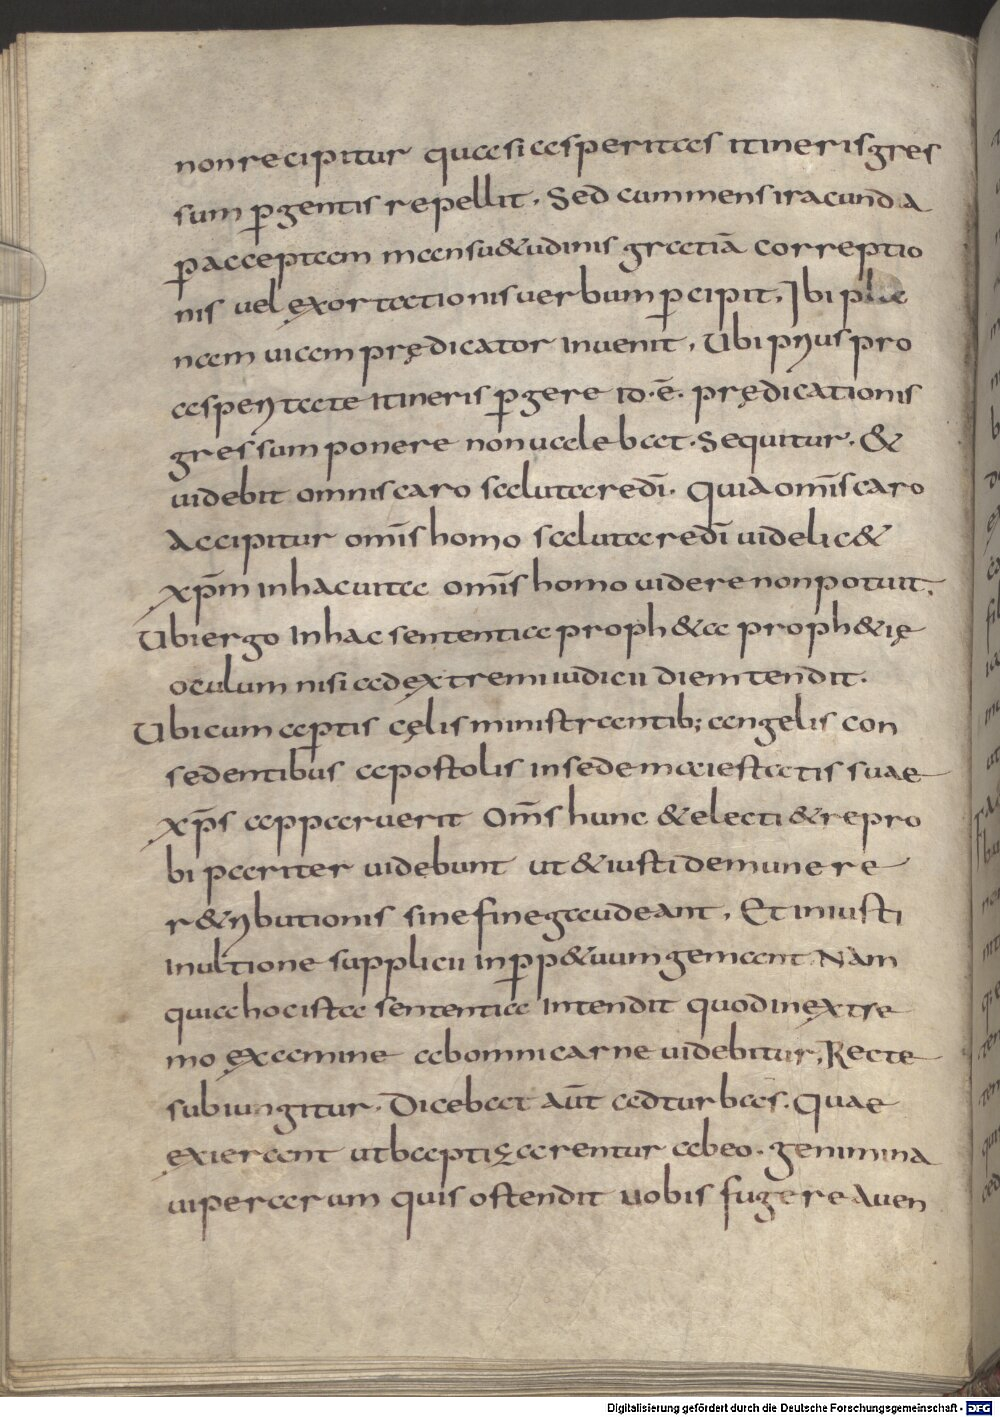 non recipitur quasi asperitas itineris gres
sum p̲gentis repellit. Sed cum mens iracunda
p̲ accepta mansu&udinis gratiā correptio
nis uel exortationis uerbum p̲cipit. Ibi pla
nam uiam prędicator inuenit. Ubi prius pro
asperitate itineris p̲gere id·ē· prędicationis
gressum ponere non ualebat. Sequitur. &
uidebit omnis caro salutaredī. Quia om̄s caro
Accipitur om̄s homo salutaredī uidelic&
xp̄m in hac uita om̄s homo uidere non potuit.
Ubi ergo in hac sententia proph&a proph&ię
oculum nisi ad extremi iudicii diem tendit.
Ubi cum ap̲tis cęlis ministrantib; angelis con
sedentibus apostolis in sede maiestatis suae
xp̄s apparuerit Om̄s hunc & electi & repro
bi pariter uidebunt ut & iusti de munere
r&ributionis sine fine gaudeant. Et iniusti
in ultione supplicii in p̲p&uum gemant. Nam
quia hoc ista sententia intendit quod in extre
mo examine ab omni carne uidebitur, Recte
subiungitur. Dicebat aūt ad turbas. Quae
exierant ut baptizarentur ab eo. genimina
uiperarum quis ostendit uobis fugere a uen
Digitalisierung gefördert durch die Deutsche Forschungsgemeinschaft - DFG